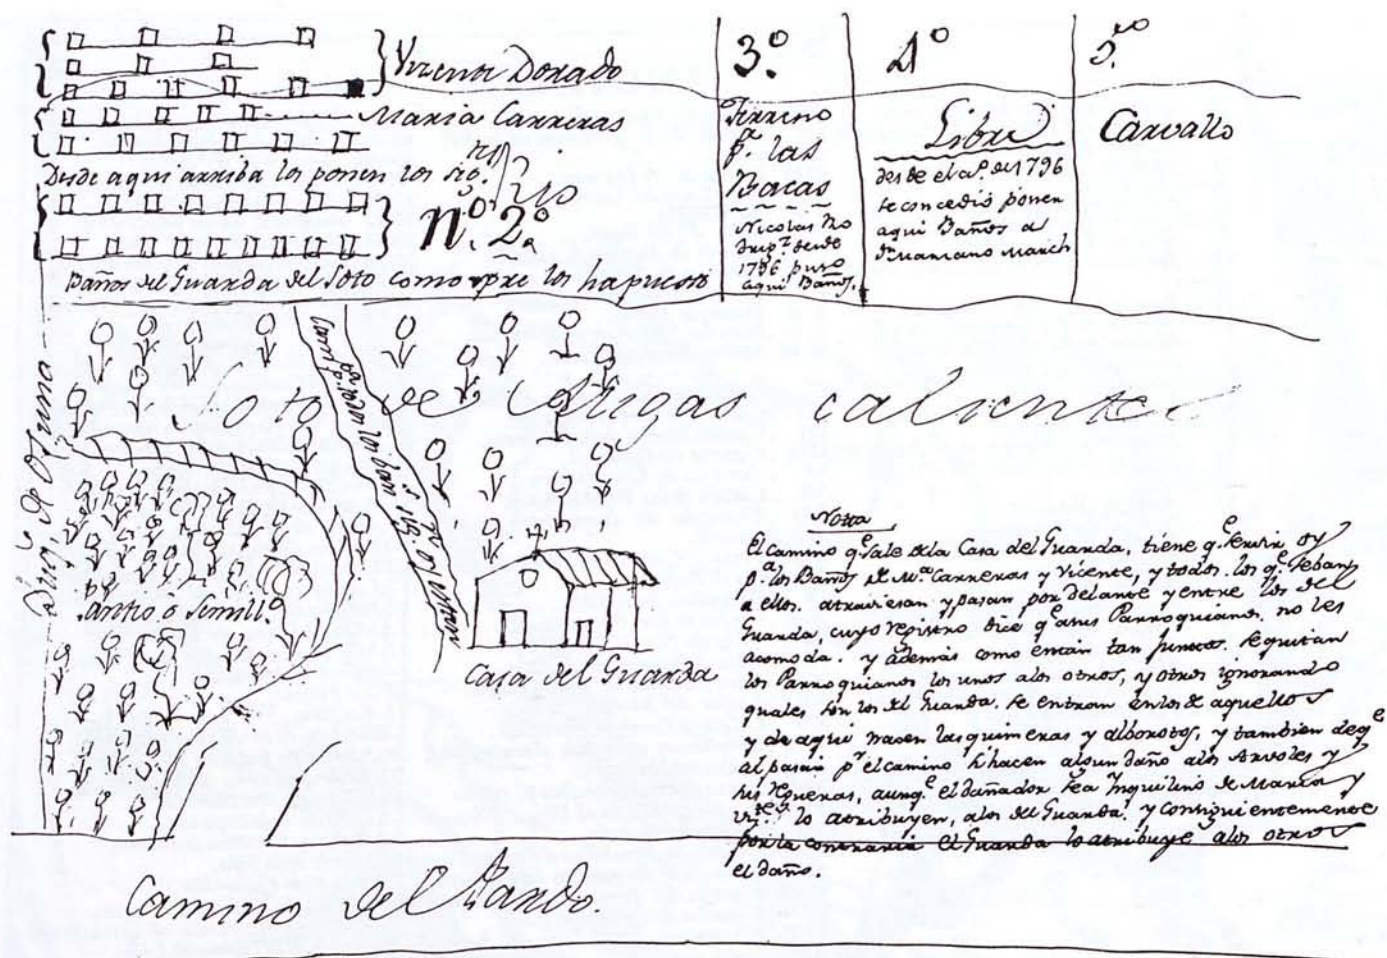 Vicente Dorado
Maria Carreras
Desde aqui arriba los ponen los sig.tes
Rio
nº. 2ª
Baños del Guarda del Soto como spre los ha puesto
3.º
Terreno
pª. las
Bacas
Nicolas Ro
drigz desde
1796 puso
aqui Baños.
4º
Libre
desde el aº. de 1796
se concedió poner
aqui Baños a
dn Mariano March
5.to
Carvallo
Soto de Migas calientes
Camº. pª. todos los bañs. q
Duqe. de Osuna
Plantio ó Semillº.
Casa del Guarda
Notta
El camino qe. sale dela Casa del Guarda, tiene q. servir oy
pa. los Baños de Ma. Carreras y Vicente, y todos los qe. se ban
a ellos. atraviesan y pasan por delante y entre los del
Guarda, cuyo registro dice qe. asus Parroquianos. no les
acomoda. y además como están tan juntos. se quitan
los Parroquianos los unos alos otros, y otros ignorando
quales son los del Guarda. se entran en los de aquellos
y de aqui nacen las quimeras y alborotos, y tambien de qe
al pasar pr. el camino si hacen algun daño alos Arvoles y
sus regueras, aunqe. el dañador sea Ynquilino de Maria y
Vizte. lo atribuyen, alos del Guarda. y consiguientemente
por la contraria el Guarda lo atribuye alos otros
el daño.
Camino del Pardo.